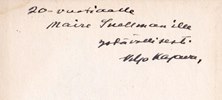 20-vuotiaalle
Maire Snellmanille
ystävällisesti
Viljo Kajava.